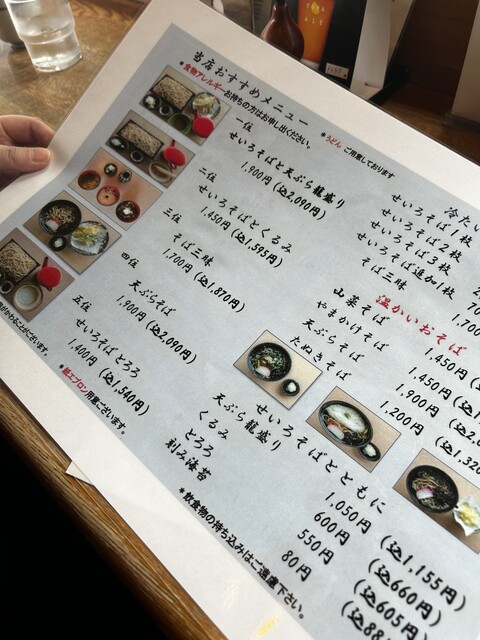 当店おすすめメニュー
*食物アレルギーお持ちの方はお申し出ください。
*うどん ご用意しております
一位
せいろそばと天ぷら籠盛り
1,900円 (込2,090円)
二位
せいろそばとくるみ
1,450円 (込1,595円)
三位
そば三昧
1,700円 (込1,870円)
四位
天ぷらそば
1,900円 (込2,090円)
五位
せいろそばとろろ
1,400円 (込1,540円)
*紙エプロン用意ございます。
冷たい
せいろそば1枚
せいろそば2枚
せいろそば3枚
せいろそば追加1枚 70
そば三昧 1,700
温かいおそば
山菜そば 1,450円
やまかけそば 1,450円
天ぷらそば 1,900円
たぬきそば 1,200円 (込1,320
せいろそばとともに
天ぷら籠盛り 1,050円 (込1,155円)
くるみ 600円 (込660円)
とろろ 550円 (込605円)
刻み海苔 80円 (込88
*飲食物の持ち込みはご遠慮下さい。